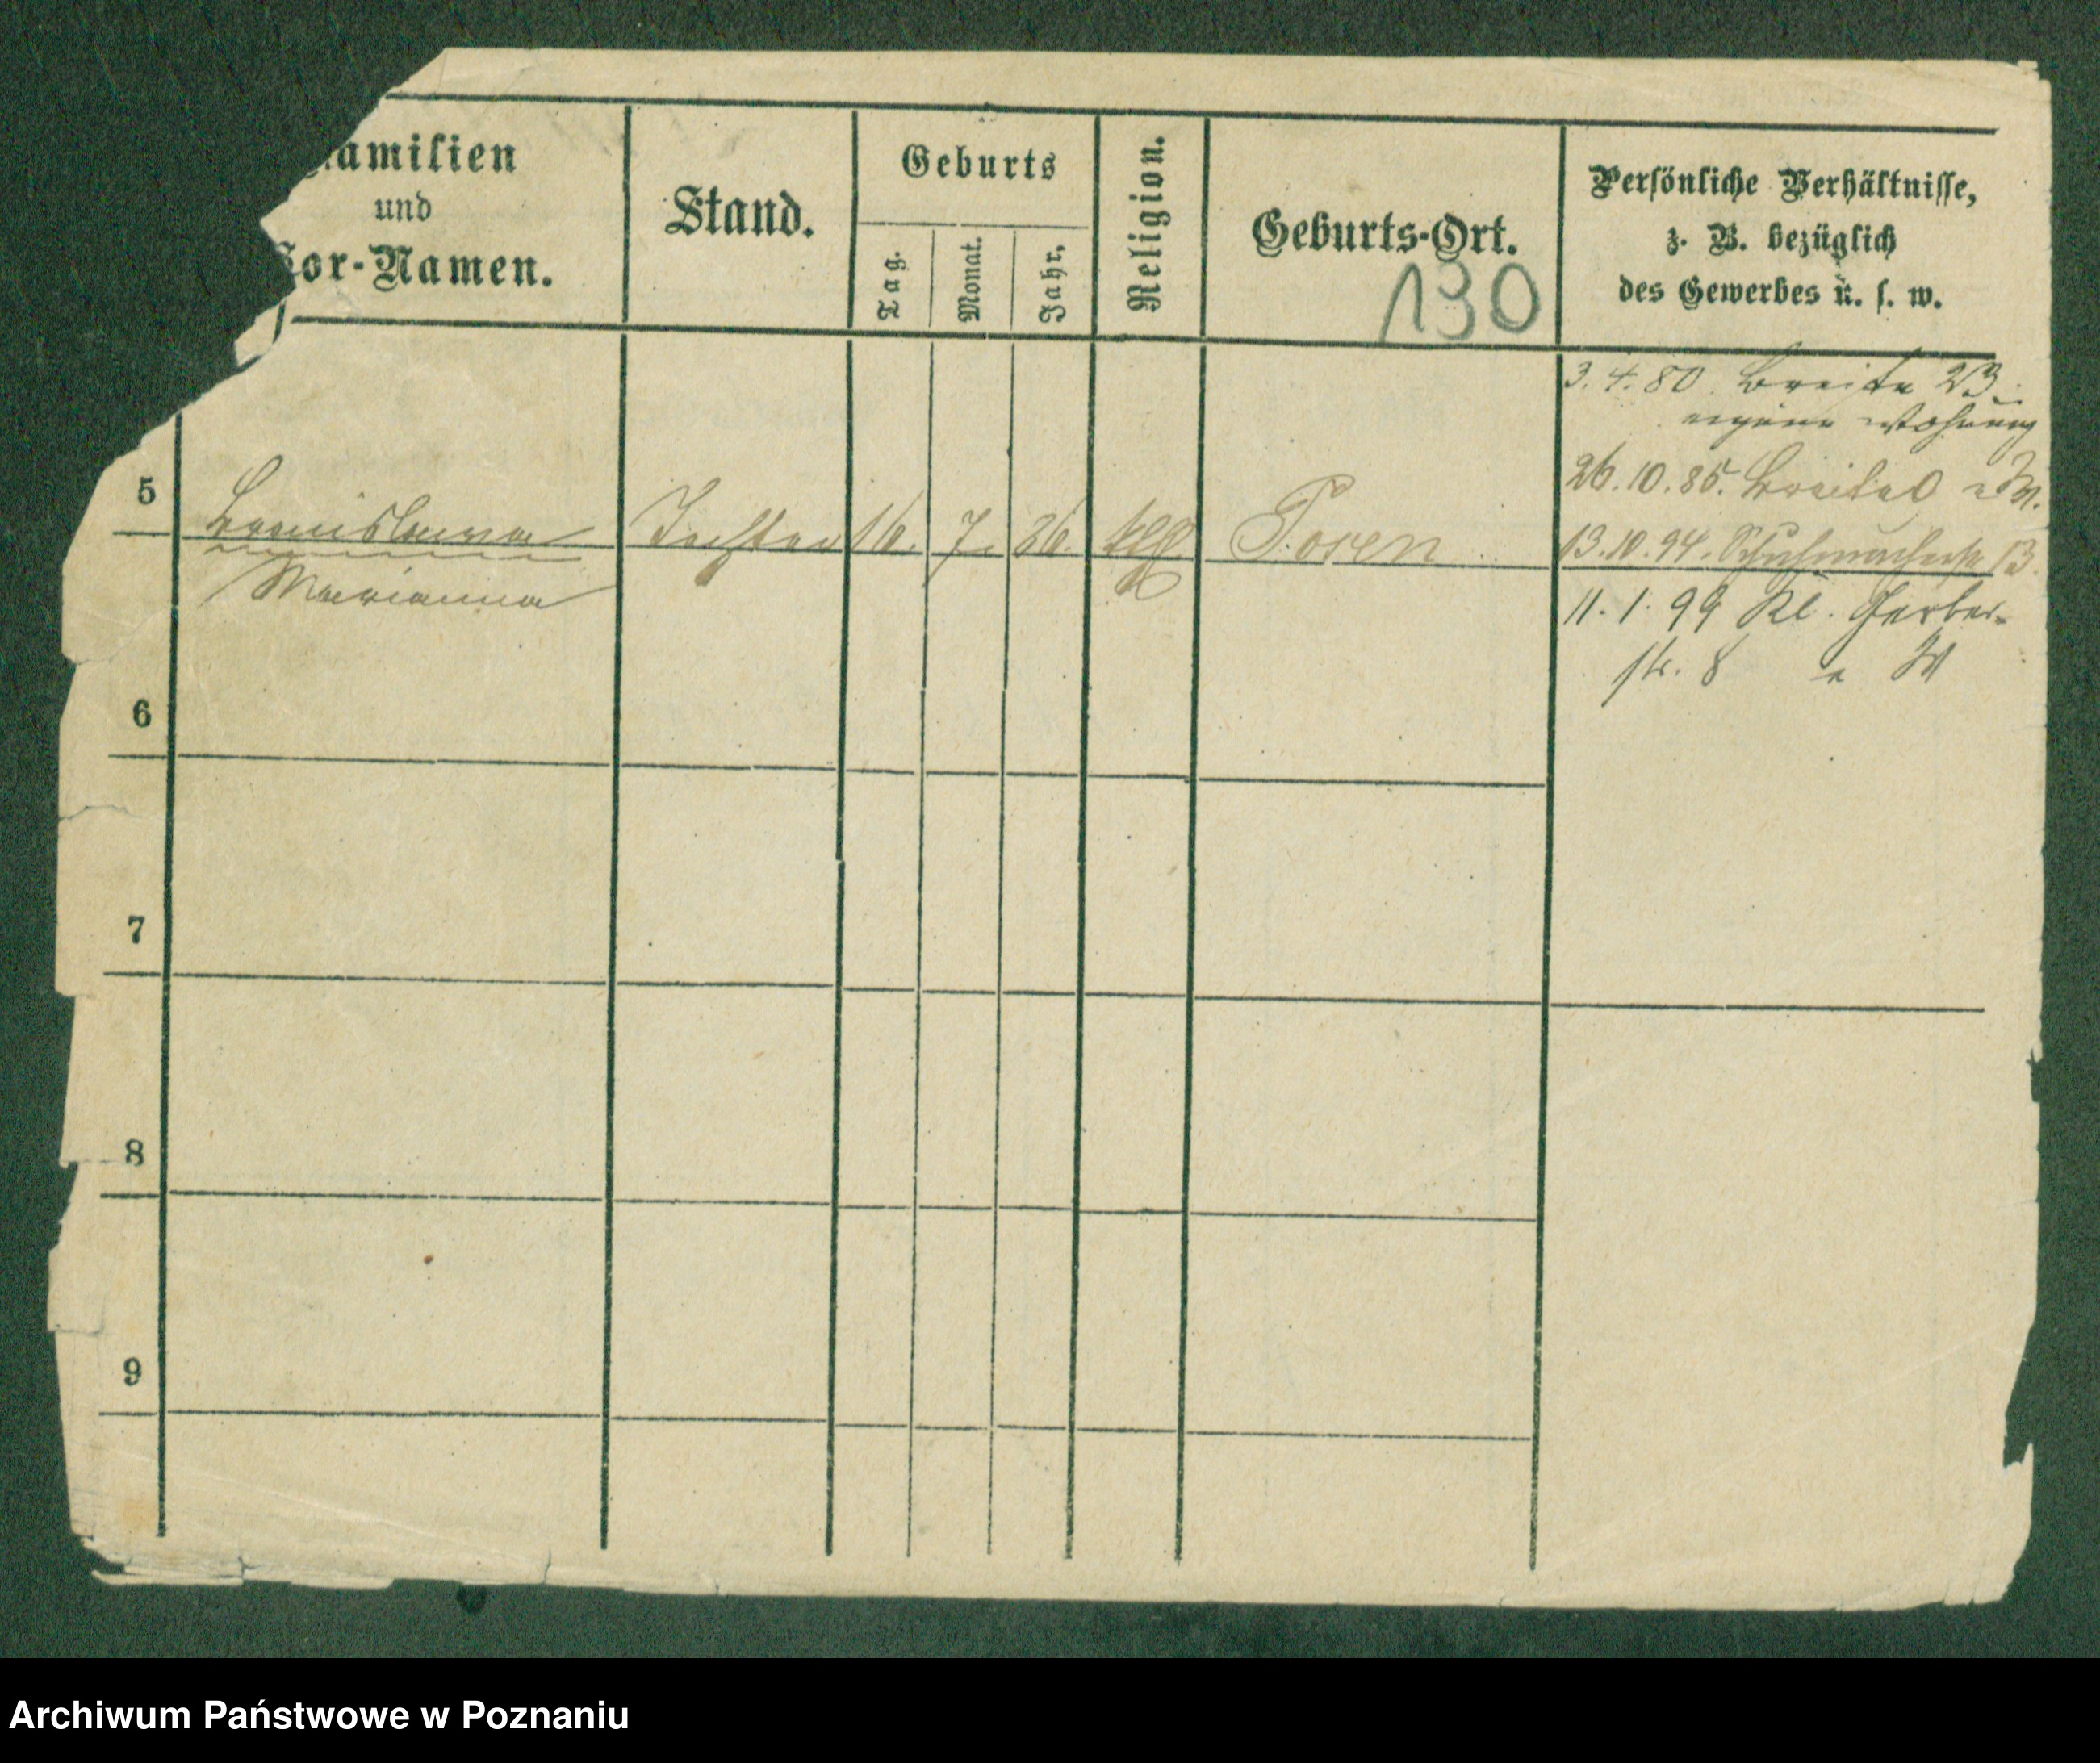 Familien
und
Vor-Namen.
Stand.
Geburts
Tag.
Monat.
Jahr.
Religion.
Geburts-Ort.
130
Persönliche Verhältnisse,
z. B. bezüglich
des Gewerbes u. s. w.
3. 4. 80. Breite 23.
eigene Wohnung
26. 10. 85. Breite
5
Bronislawa Tochter 16. 7. 86. kth Posen
13. 10. 94. Schuhmacherstr 13
Marianna
11. 1. 99 Kl. Gerber-
str. 8 e W
6
7
8
9
Archiwum Państwowe w Poznaniu